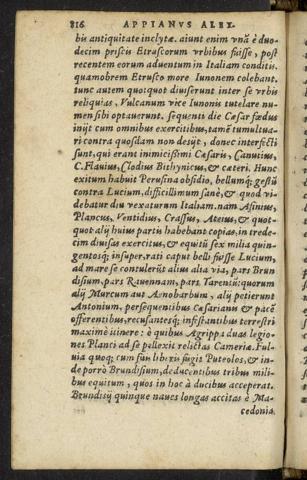 816 APPIANVS ALEX.
bis antiquitate inclytæ. aiunt enim vnã è duo-
decim priscis Etruscorum vrbibus fuisse, post
recentem eorum aduentum in Italiam conditis.
quamobrem Etrusco more Iunonem colebant.
tunc autem quotquot diuiserunt inter se vrbis
reliquias, Vulcanum vice Iunonis tutelare nu-
men sibi optauerunt. sequenti die Cæsar fœdus
inijt cum omnibus exercitibus, tamẽ tumultua-
ri contra quosdam non desijt, donec interfecti
sunt, qui erant inimicissimi Cæsaris, Canutius,
C. Flauius, Clodius Bithynicus, & cæteri. Hunc
exitum habuit Perusina obsidio, bellumq́; gestũ
contra Lucium, difficillimum sanè, & quod vi-
debatur diu vexaturum Italiam. nam Asinius,
Plancus, Ventidius, Crassus, Ateius, & quot-
quot alij huius partis habebant copias, in trede-
cim diuisas exercitus, & equitũ sex milia quin-
gentosq́; insuper, rati caput belli fuisse Lucium,
ad mare se contulerũt alius alia via, pars Brun
disium, pars Rauennam, pars Tarentũ: quorum
alij Murcum aut Aenobarbum, alij petierunt
Antonium, persequentibus Cæsarianis & pacẽ
offerentibus, recusantesq́; infestantibus terrestri
maximè itinere: è quibus Agrippa duas legio-
nes Planci ad se pellexit relictas Cameriæ. Ful-
uia quoq; cum suis liberis fugit Puteolos, & in-
de porrò Brundisium, deducentibus tribus mili-
bus equitum, quos in hoc à ducibus acceperat.
Brundisij quinque naues longas accitas è Ma-
cedonia